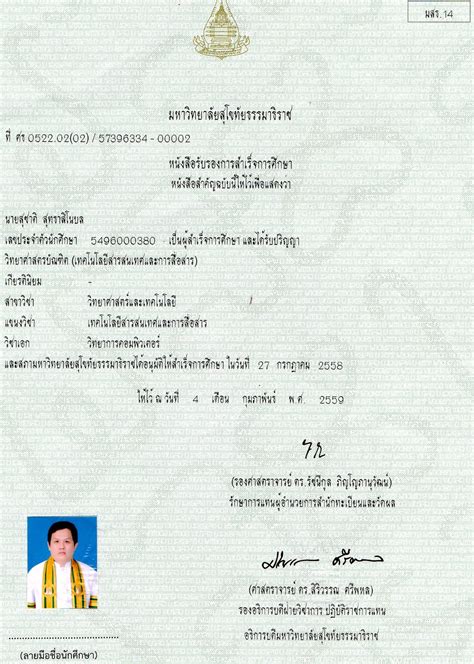 มสร.14
มหาวิทยาลัยสุโขทัยธรรมาธิราช
ที่ ศธ 0522.02(02) / 57396334 - 00002
หนังสือรับรองการสำเร็จการศึกษา
หนังสือสำคัญฉบับนี้ให้ไว้เพื่อแสดงว่า
นายสุชาติ สุทราสีโนบล
เลขประจำตัวนักศึกษา 5496000380 เป็นผู้สำเร็จการศึกษา และได้รับปริญญา
วิทยาศาสตรบัณฑิต (เทคโนโลยีสารสนเทศและการสื่อสาร)
เกียรตินิยม -
สาขาวิชา วิทยาศาสตร์และเทคโนโลยี
แขนงวิชา เทคโนโลยีสารสนเทศและการสื่อสาร
วิชาเอก วิทยาการคอมพิวเตอร์
และสภามหาวิทยาลัยสุโขทัยธรรมาธิราชได้อนุมัติให้สำเร็จการศึกษา ในวันที่ 27 กรกฎาคม 2558
ให้ไว้ ณ วันที่ 4 เดือน กุมภาพันธ์ พ.ศ. 2559
(รองศาสตราจารย์ ดร.รัชนีกุล ภิญโญภานุวัฒน์)
รักษาการแทนผู้อำนวยการสำนักทะเบียนและวัดผล
(ศาสตราจารย์ ดร.สิริวรรณ ศรีพหล)
รองอธิการบดีฝ่ายวิชาการ ปฏิบัติราชการแทน
อธิการบดีมหาวิทยาลัยสุโขทัยธรรมาธิราช
(ลายมือชื่อนักศึกษา)